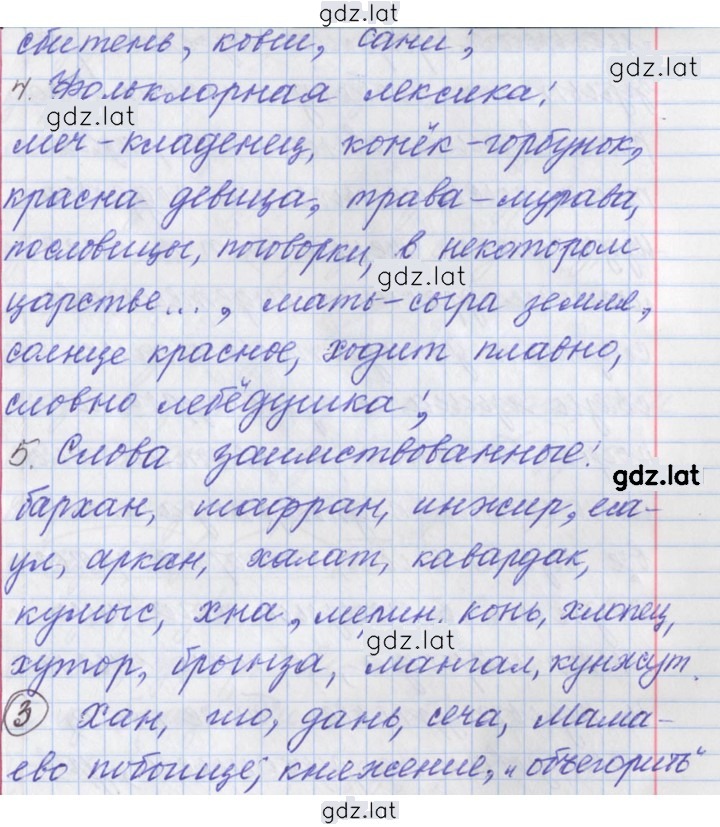 gdz.lat
сбитень, ковш, сани;
gdz.lat
4. Фольклорная лексика:
gdz.lat
меч-кладенец, конёк-горбунок,
красна девица, трава-мурава,
пословицы, поговорки, в некотором
gdz.lat
царстве..., мать-сыра земля,
солнце красное, ходит плавно,
словно лебёдушка;
5. Слова заимствованные:
gdz.lat
бархан, шафран, инжир, еса-
ул, аркан, халат, кавардак,
кумыс, хна, мерин, конь, хлопец,
gdz.lat
хутор, брынза, мангал, кунжут.
3 Хан, иго, дань, сеча, Мама-
ево побоище, княжение, „объегорить“
gdz.lat